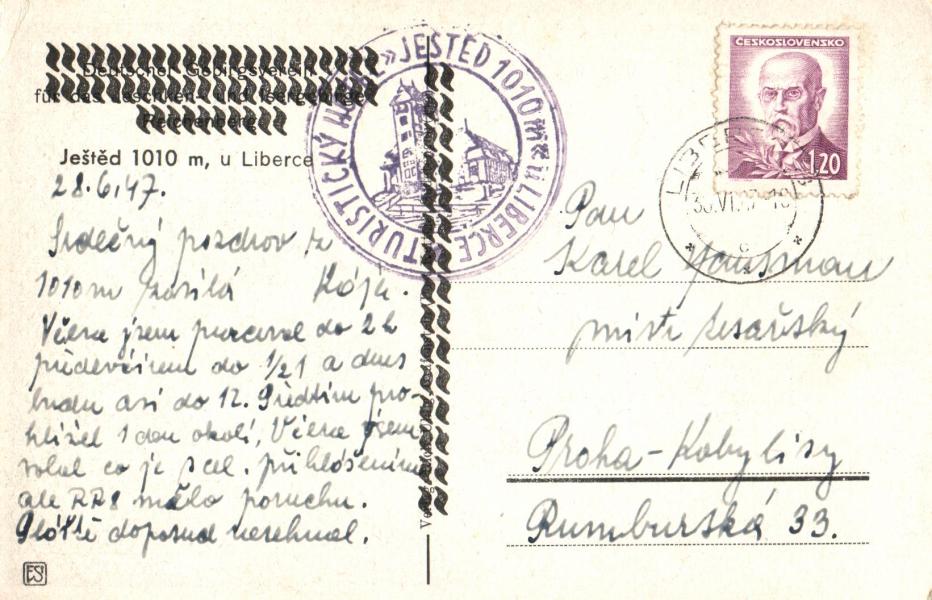 Deutscher Gebirgsverein
für das Jeschken- und Isergebirge
Reichenberg
Ještěd 1010 m, u Liberce
TURISTICKÝ » JEŠTĚD 1010 m u LIBERCE
ČESKOSLOVENSKO
1.20
LIBEREC
30.VI.47-10
c
28.6.47.
Srdečný pozdrav z
1010m zasílá Kája.
Včera jsem pracoval do 2 h
předevčírem do 1/21 a dnes
budu asi do 12. Předtím pro-
hlížel 1 den okolí, Včera jsem
volal co je s cel. přihlášením
ale RR8 mělo poruchu.
doposud nesehnal.
Pan
Karel
mistr tesařský
Praha-Kobylisy
Rumburská 33.